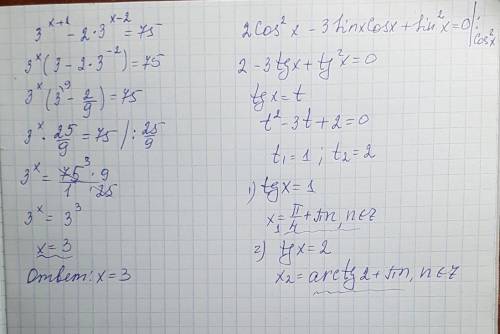 3^(x+1) - 2·3^(x-2) = 75
3^x (3 - 2·3^(-2)) = 75
3^x (3^9 - 2/9) = 75
3^x · 25/9 = 75 | : 25/9
3^x = 75^3 · 9 / 1 · 25
3^x = 3^3
x = 3
Ответ: x = 3
2cos²x - 3sinxcosx + sin²x = 0 | : cos²x
2 - 3tgx + tg²x = 0
tgx = t
t² - 3t + 2 = 0
t₁ = 1 ; t₂ = 2
1) tgx = 1
x₁ = π/4 + πn, n∈Z
2) tgx = 2
x₂ = arctg2 + πn, n∈Z